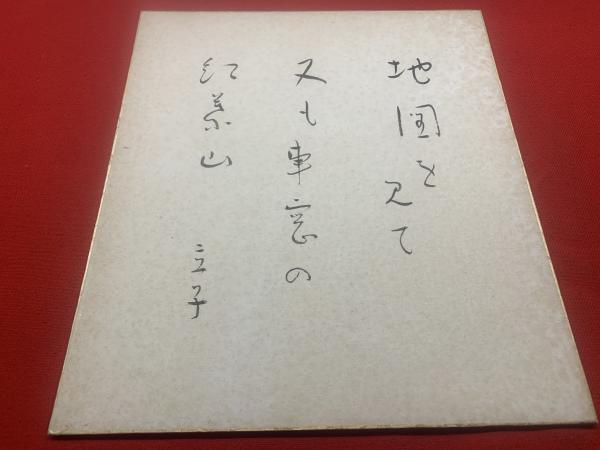 地図を見て
又も車窓の
紅葉山
立子